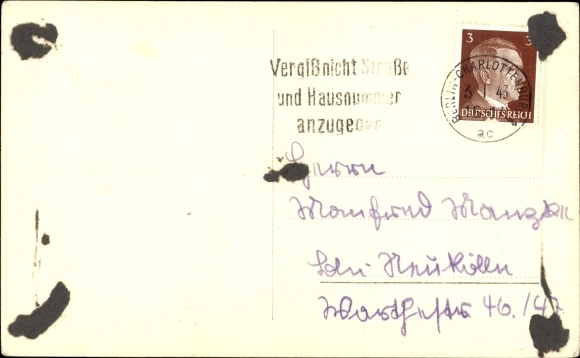 3 3
Vergißnicht Straße
und Hausnummer
anzugeben
BERLIN-CHARLOTTENBURG
3. 1. 43
DEUTSCHES REICH
ac
Herrn
Manfred
Bln Neukölln
Warthestr 46./47